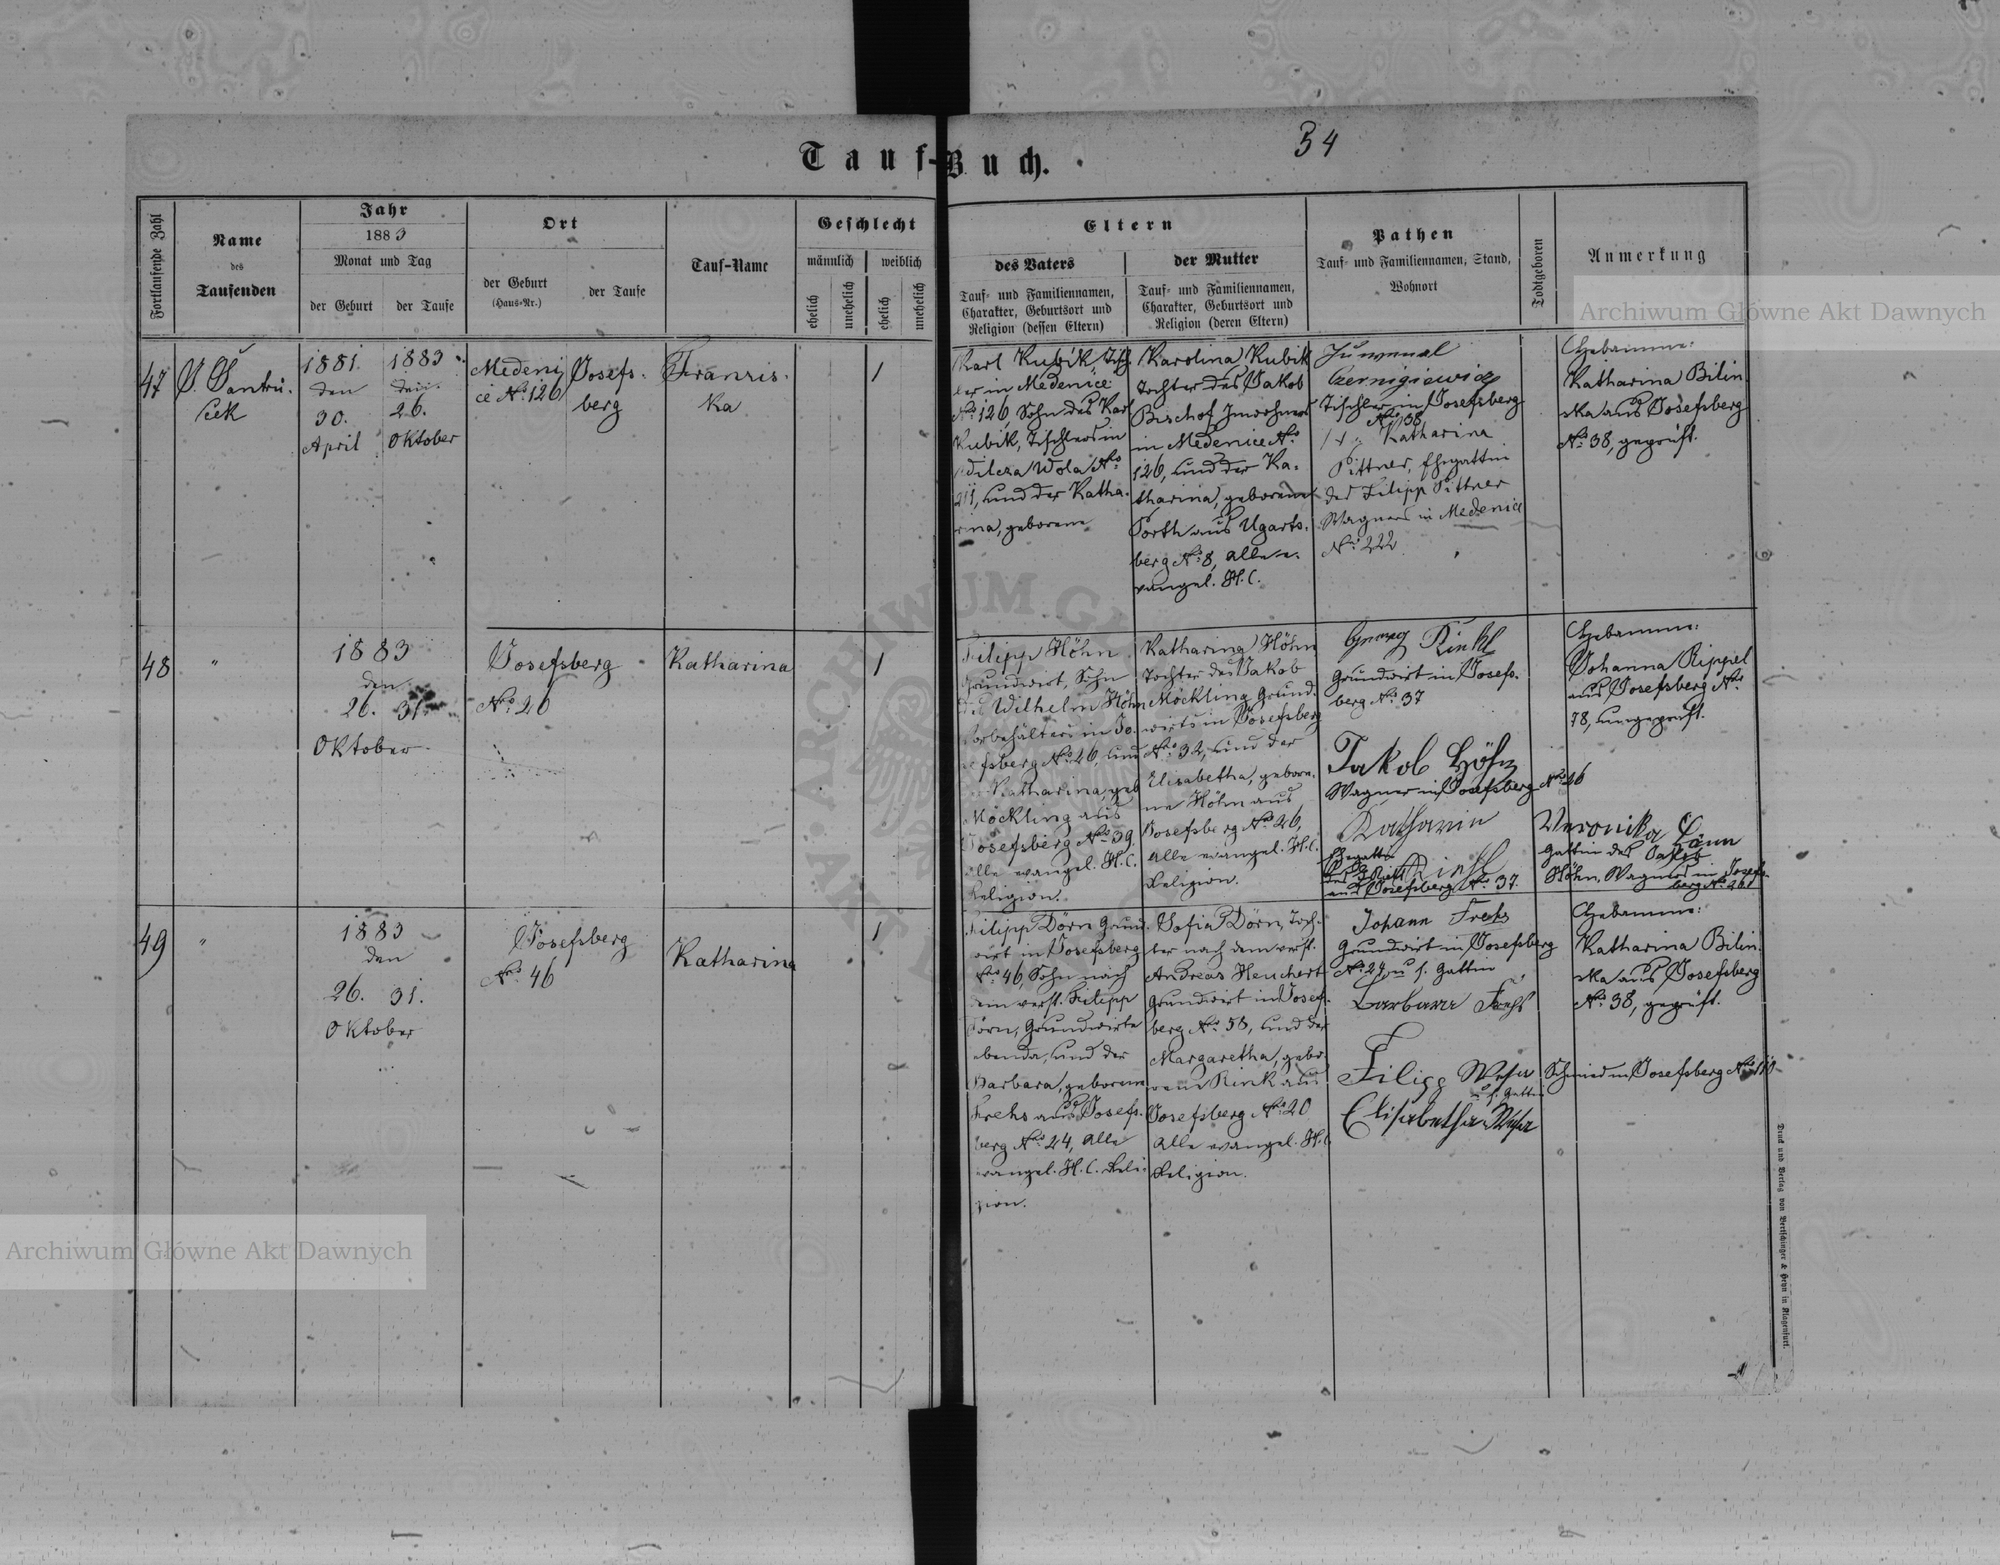 Tauf-Buch.
34
Fortlaufende Zahl
Name
des
Taufenden
Jahr
1883
Monat und Tag
der Geburt
der Taufe
Ort
der Geburt
(Haus-Nr.)
der Taufe
Tauf-Name
Geschlecht
männlich
weiblich
ehelich
unehelich
ehelich
unehelich
Eltern
des Vaters
Tauf- und Familiennamen,
Charakter, Geburtsort und
Religion (dessen Eltern)
der Mutter
Tauf- und Familiennamen,
Charakter, Geburtsort und
Religion (deren Eltern)
Pathen
Tauf- und Familiennamen, Stand,
Wohnort
Todtgeboren
Anmerkung
Archiwum Główne Akt Dawnych
47
J. Santru-
ček
1881.
den
30.
April
1883
den
26.
Oktober
Medeni
ce No. 126
Josefs-
berg
Franzis-
ka
1
Karl Kubik, Tisch
ler in Medenice
No. 126, Sohn des Karl
Kubik, Tischlers in
Wola No.
211, und der Katha-
rina, geborene
Karolina Kubik
Tochter des Jakob
Bischof, Inwohners
in Medenice No.
126, und der Ka-
tharina, geborene
Porth aus Ugarts-
berg No. 8, alle e-
vangel. H.C.
Juwenal
Tischler in Josefsberg
No. 38
Katharina
Pittner, Ehegattin
des Filipp Pittner
Wagners in Medenice
No. 222
Hebamme:
Katharina Bilin-
ska aus Josefsberg
No. 38, geprüft.
48
"
1883
den
26. 31.
Oktober
Josefsberg
No. 26
Katharina
1
Filipp Höhn
Grundwirt, Sohn
des Wilhelm Höhn
Vorbehälters in Jo-
sefsberg No. 26, und
Katharina, geb
Möckling aus
Josefsberg No. 39.
alle evangel. H.C.
Religion.
Katharina Höhn
Tochter des Jakob
Möckling, Grund-
wirts in Josefsberg
No. 32, und der
Elisabetha, gebore-
ne Höhn aus
Josefsberg No. 26,
alle evangel. H.C.
Religion.
Georg Rinkl
Grundwirt in Josefs-
berg No. 37
Jakob Höhn
Wagner in Josefsberg No. 26
Katharin
Ehegattin
aus Josefsberg No. 37.
Hebamme:
Johanna Rippel
aus Josefsberg No.
78, ungeprüft.
Veronika Höhn
Gattin des Jakob
Höhn, Wagners in Josefs-
berg No. 26
49
"
1883
den
26. 31.
Oktober
Josefsberg
No. 46
Katharina
1
Filipp Dörn Grund-
wirt in Josefsberg
No. 46, Sohn nach
dem verst. Filipp
Dörn, Grundwirte
ebenda, und der
Barbara, geborene
Frehs aus Josefs-
berg No. 24, alle
evangel. H.C. Reli-
gion.
Sofia Dörn, Toch-
ter nach dem verst.
Andreas Heuchert
Grundwirt in Josefs-
berg No. 58, und der
Margaretha, gebo-
rene Rink aus
Josefsberg No. 20
alle evangel. H.C.
Religion.
Johann Frehs
Grundwirt in Josefsberg
No. 24 u s. Gattin
Barbara Frehs
Filipp Schmied in Josefsberg No.
u s. Gattin
Elisabetha
Hebamme:
Katharina Bilin-
ska aus Josefsberg
No. 38, geprüft.
Druck und Verlag von Bertschinger & Heyn in Klagenfurt.
Archiwum Główne Akt Dawnych
ARCHIWUM
AKT